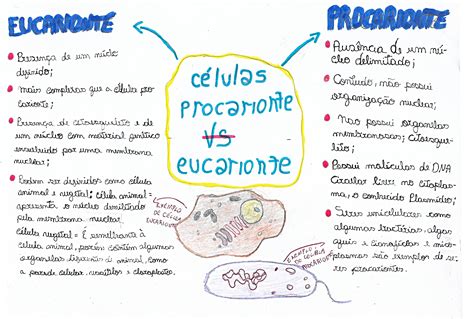 EUCARIONTE
Presença de um núcleo
definido;
Mais complexas que a célula pro-
carionte;
Presença de citoesqueleto e de
um núcleo com material genético
envolvido por uma membrana
nuclear;
Podem ser divididos como célula
animal e vegetal: célula animal=
apresenta o núcleo delimitado
pela membrana nuclear.
Célula vegetal= É semelhante à
célula animal, porém contém algumas
organelas diferentes do animal, como
a parede celular, vacúolos e cloroplastos.
células
procarionte
VS
eucarionte
EXEMPLO
DE CÉLULA
EUCARIONTE
EXEMPLO
DE CÉLULA
PROCARIONTE
PROCARIONTE
Ausência de um nú-
cleo delimitado;
Contudo, não possui
organização nuclear;
Não possui organelas
membranosas; citoesque-
leto;
Possui moléculas de DNA
circular livre no citoplas-
ma, o conhecido Plasmídio;
Seres unicelulares como
algumas bactérias, algas
azuis e cianofíceas e mico-
plasmas são exemplos de se-
res procariontes.